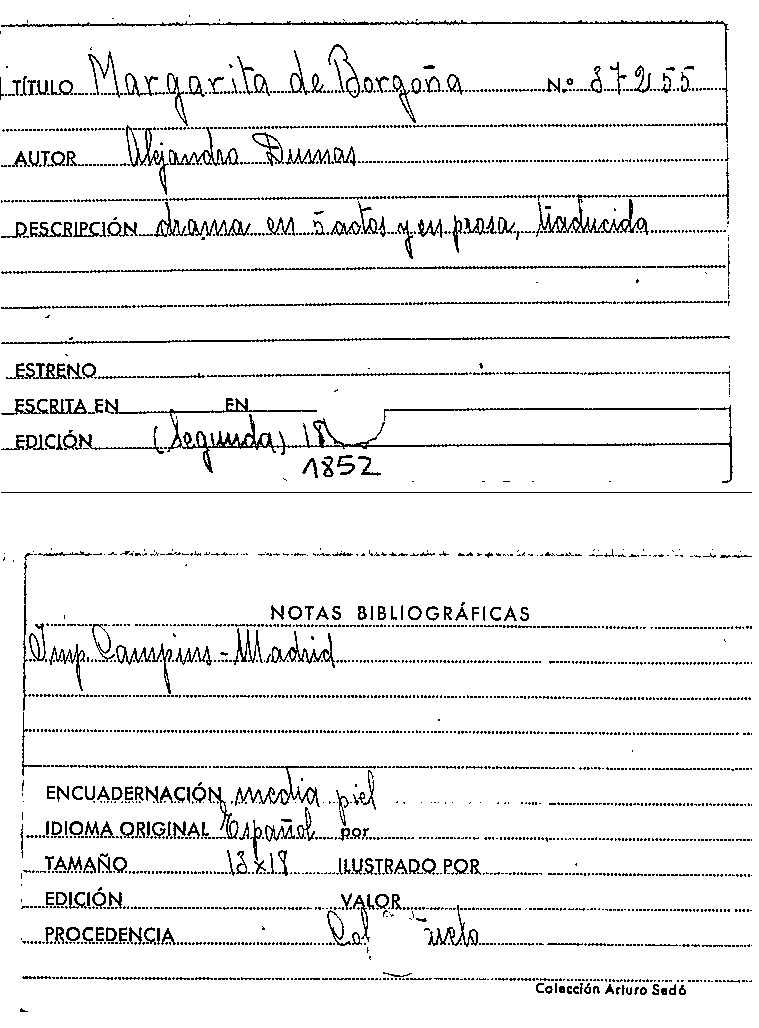 TÍTULO Margarita de Borgoña N.º 37255
AUTOR Alejandro Dumas
DESCRIPCIÓN drama en 5 actos y en prosa, traducida
ESTRENO
ESCRITA EN EN
EDICIÓN (Segunda) 18
1852
NOTAS BIBLIOGRÁFICAS
Imp. Campins - Madrid
ENCUADERNACIÓN media piel
IDIOMA ORIGINAL Español por
TAMAÑO ILUSTRADO POR
EDICIÓN VALOR
PROCEDENCIA
Colección Arturo Sedó